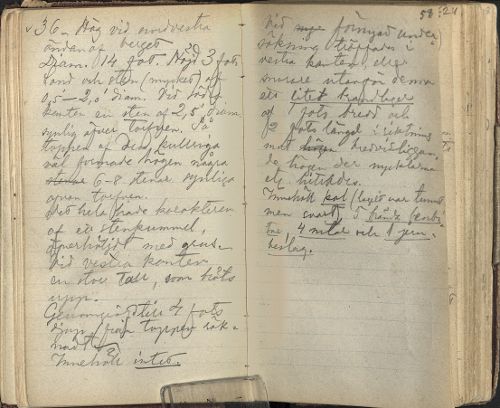 36. Hög vid nordvestra
änden af berget.
Diam. 14 fot. Höjd 3 fot.
Sand och sten (mycket) af
0,5 – 2,0' diam. Vid södra
kanten en sten af 2,5' diam.
synlig ofver torfven. På
toppen af den kulliga
väl formade högen några
6-8 stenar synliga
ofvan torfven.
Det hela hade karakteren
af ett stenkummel,
öfverhöljdt med grus.
Vid vestra kanten
en stor tall, som höts
upp.
Genomgräfdes till 4 fots
djup (från toppen räk-
nadt).
Innehöll intet.
58:24
Vid förnyad under-
sökning träffades i
vestra kanten, eller
snarare utanför denna
ett litet brandlager
af 1 fots bredd och
2 fots längd i riktning
mot bredvidliggan-
de högen der nycklarna
etc. hittades.
Innehöll kol (lagret var tunnt
men svart) 5 brända
4 nitar och 1 jern-
beslag.